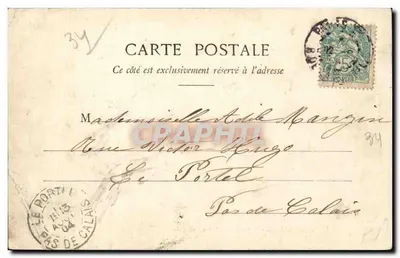 34
CARTE POSTALE
Ce côté est exclusivement réservé à l'adresse
Mademoiselle Adèle Mangin
Rue Victor Hugo
34
Le Portel
Pas de Calais
LE PORTEL
13
04
PAS DE CALAIS